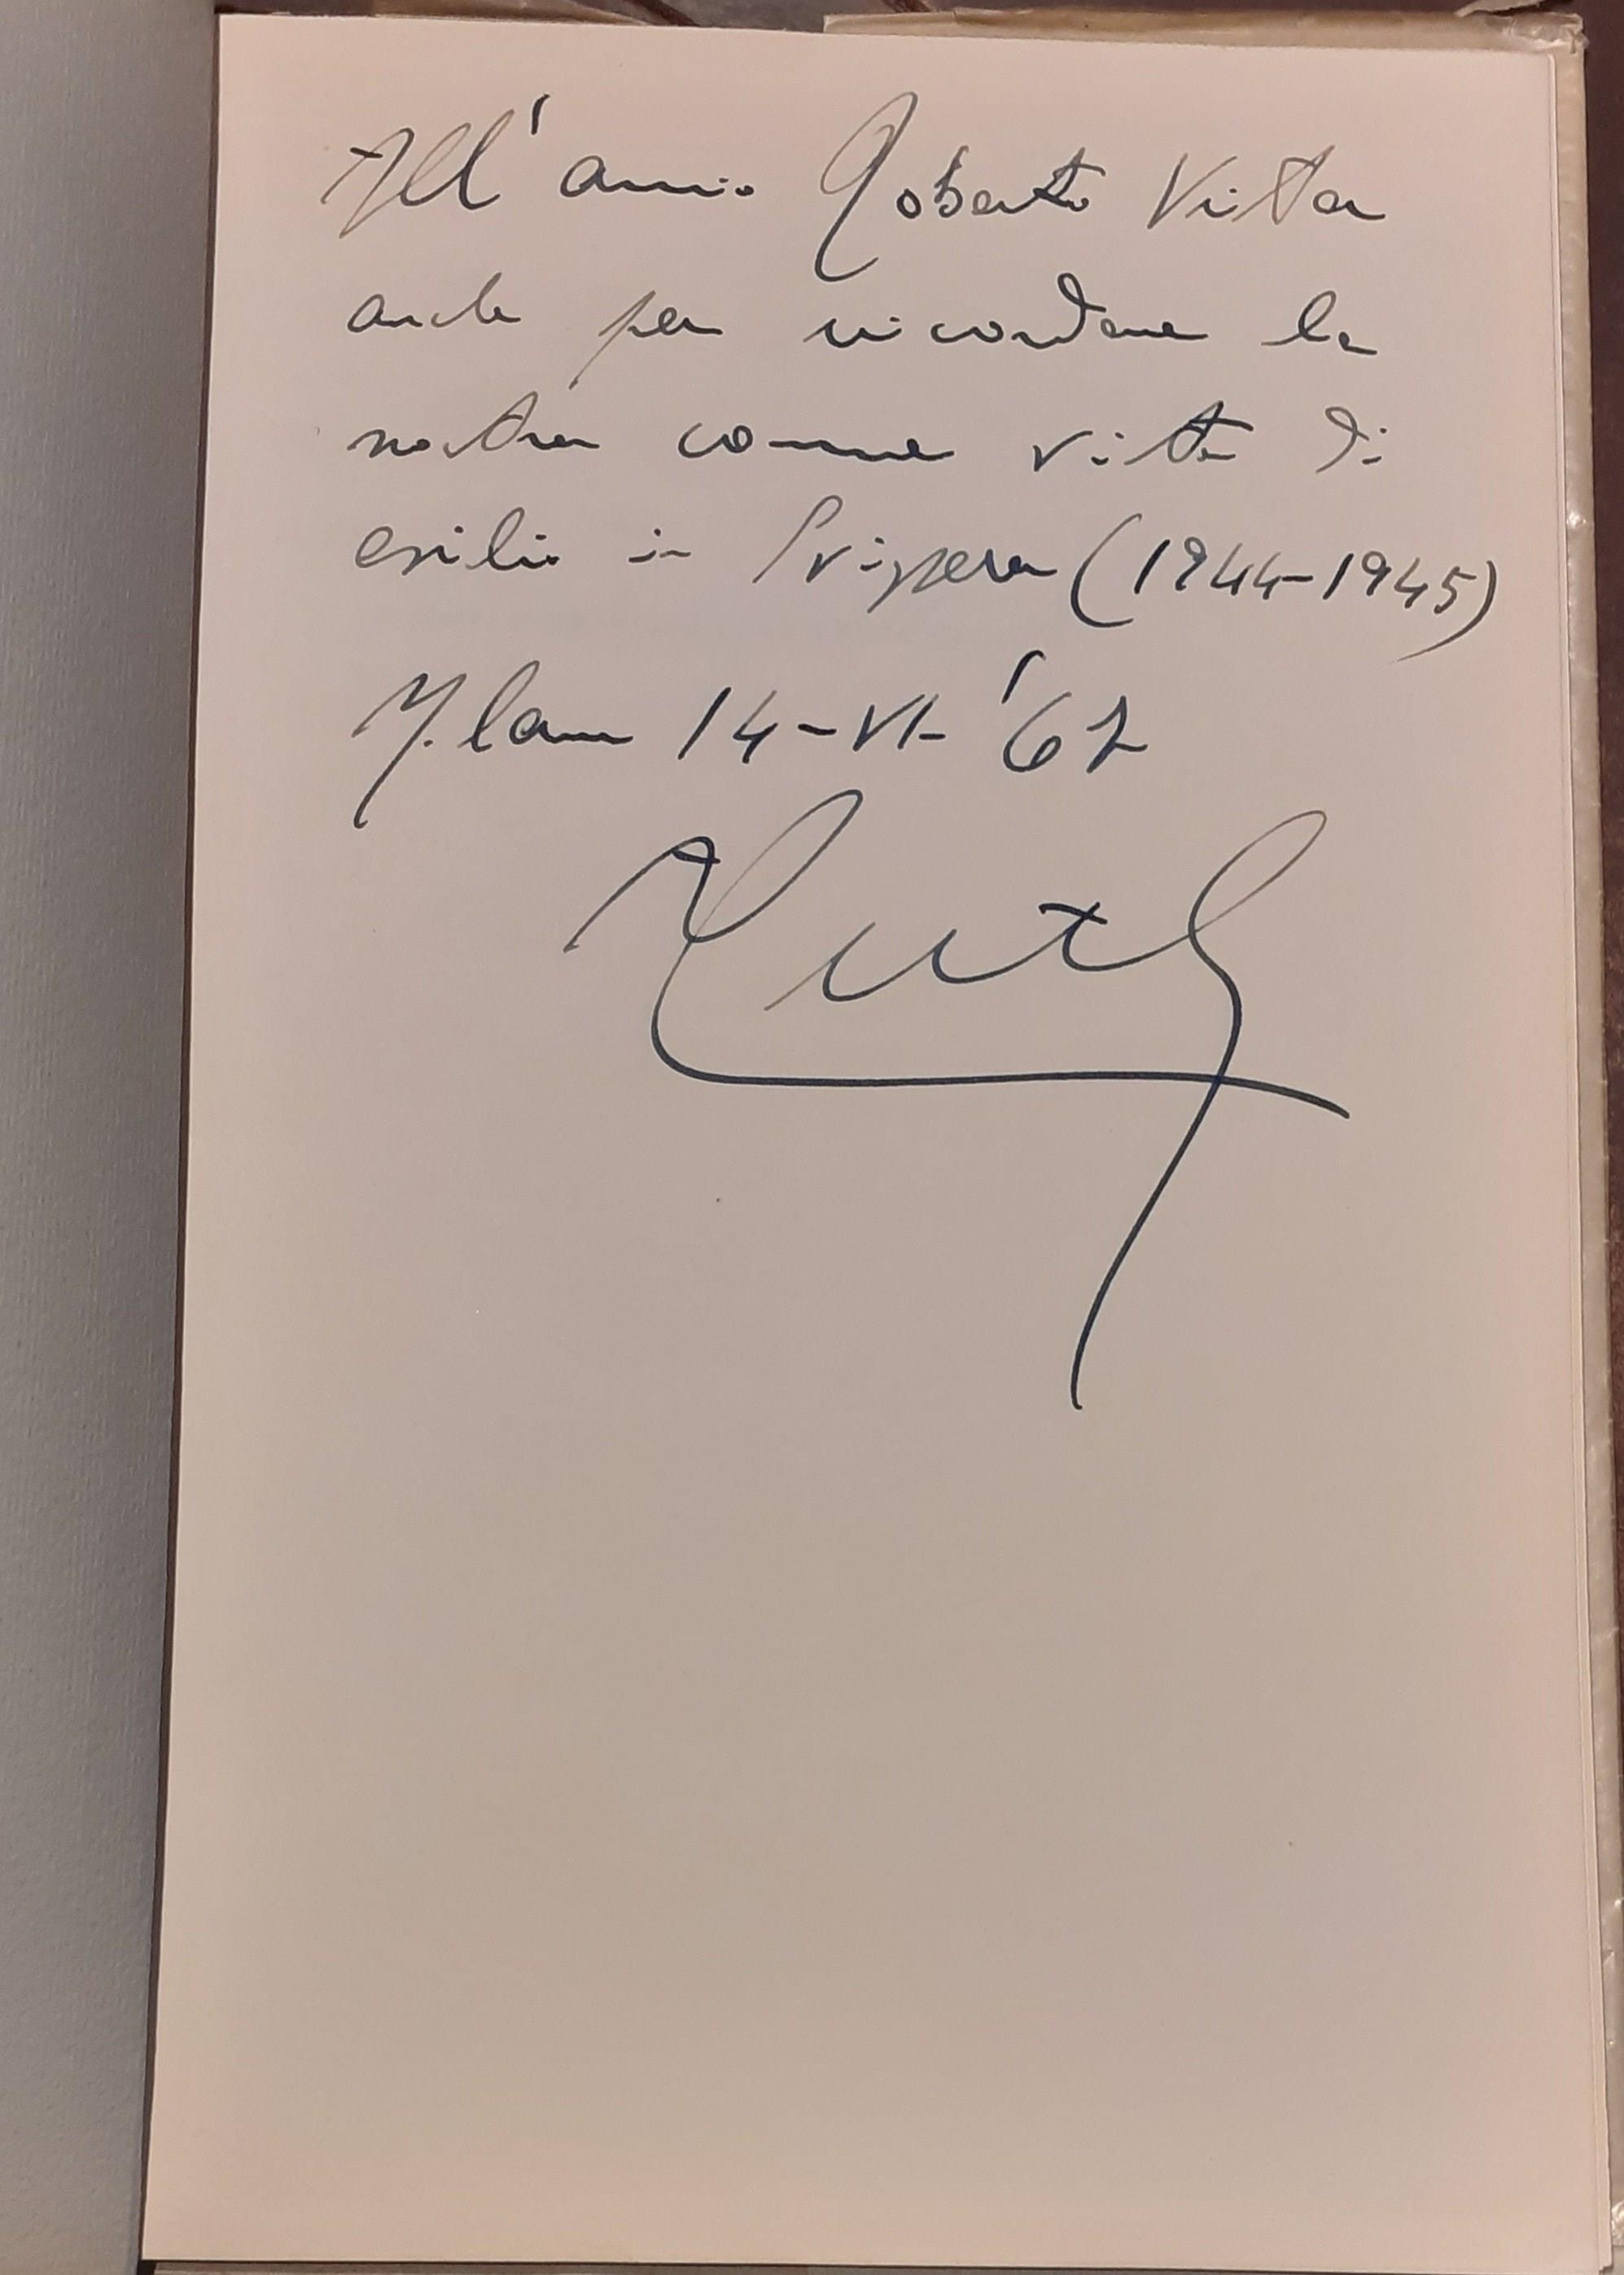 All'amico Roberto Vita
anche per ricordare la
nostra comune vita di
esilio in Svizzera (1944-1945)
Milano 14-VI-'67